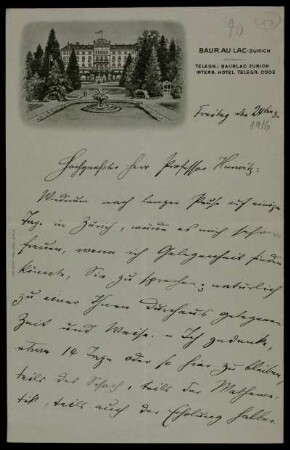 90
BAUR AU LAC - ZURICH
TELEGR.: BAURLAC ZURICH
INTERN. HOTEL TELEGR. CODE
Freitag den
1916
Hochgeehrter Herr Professor Hurwitz:
Wiederum nach langer Pause auf einige
Tage in Zürich, würde es mich sehr
freuen, wenn ich Gelegenheit finden
könnte, Sie zu sprechen; natürlich
zu einer Ihnen durchaus gelegenen
Zeit und Weise. – Ich gedenke,
etwa 14 Tage oder so hier zu bleiben,
teils des Schach, teils der Mathema-
tik, teils auch der Erholung halber.